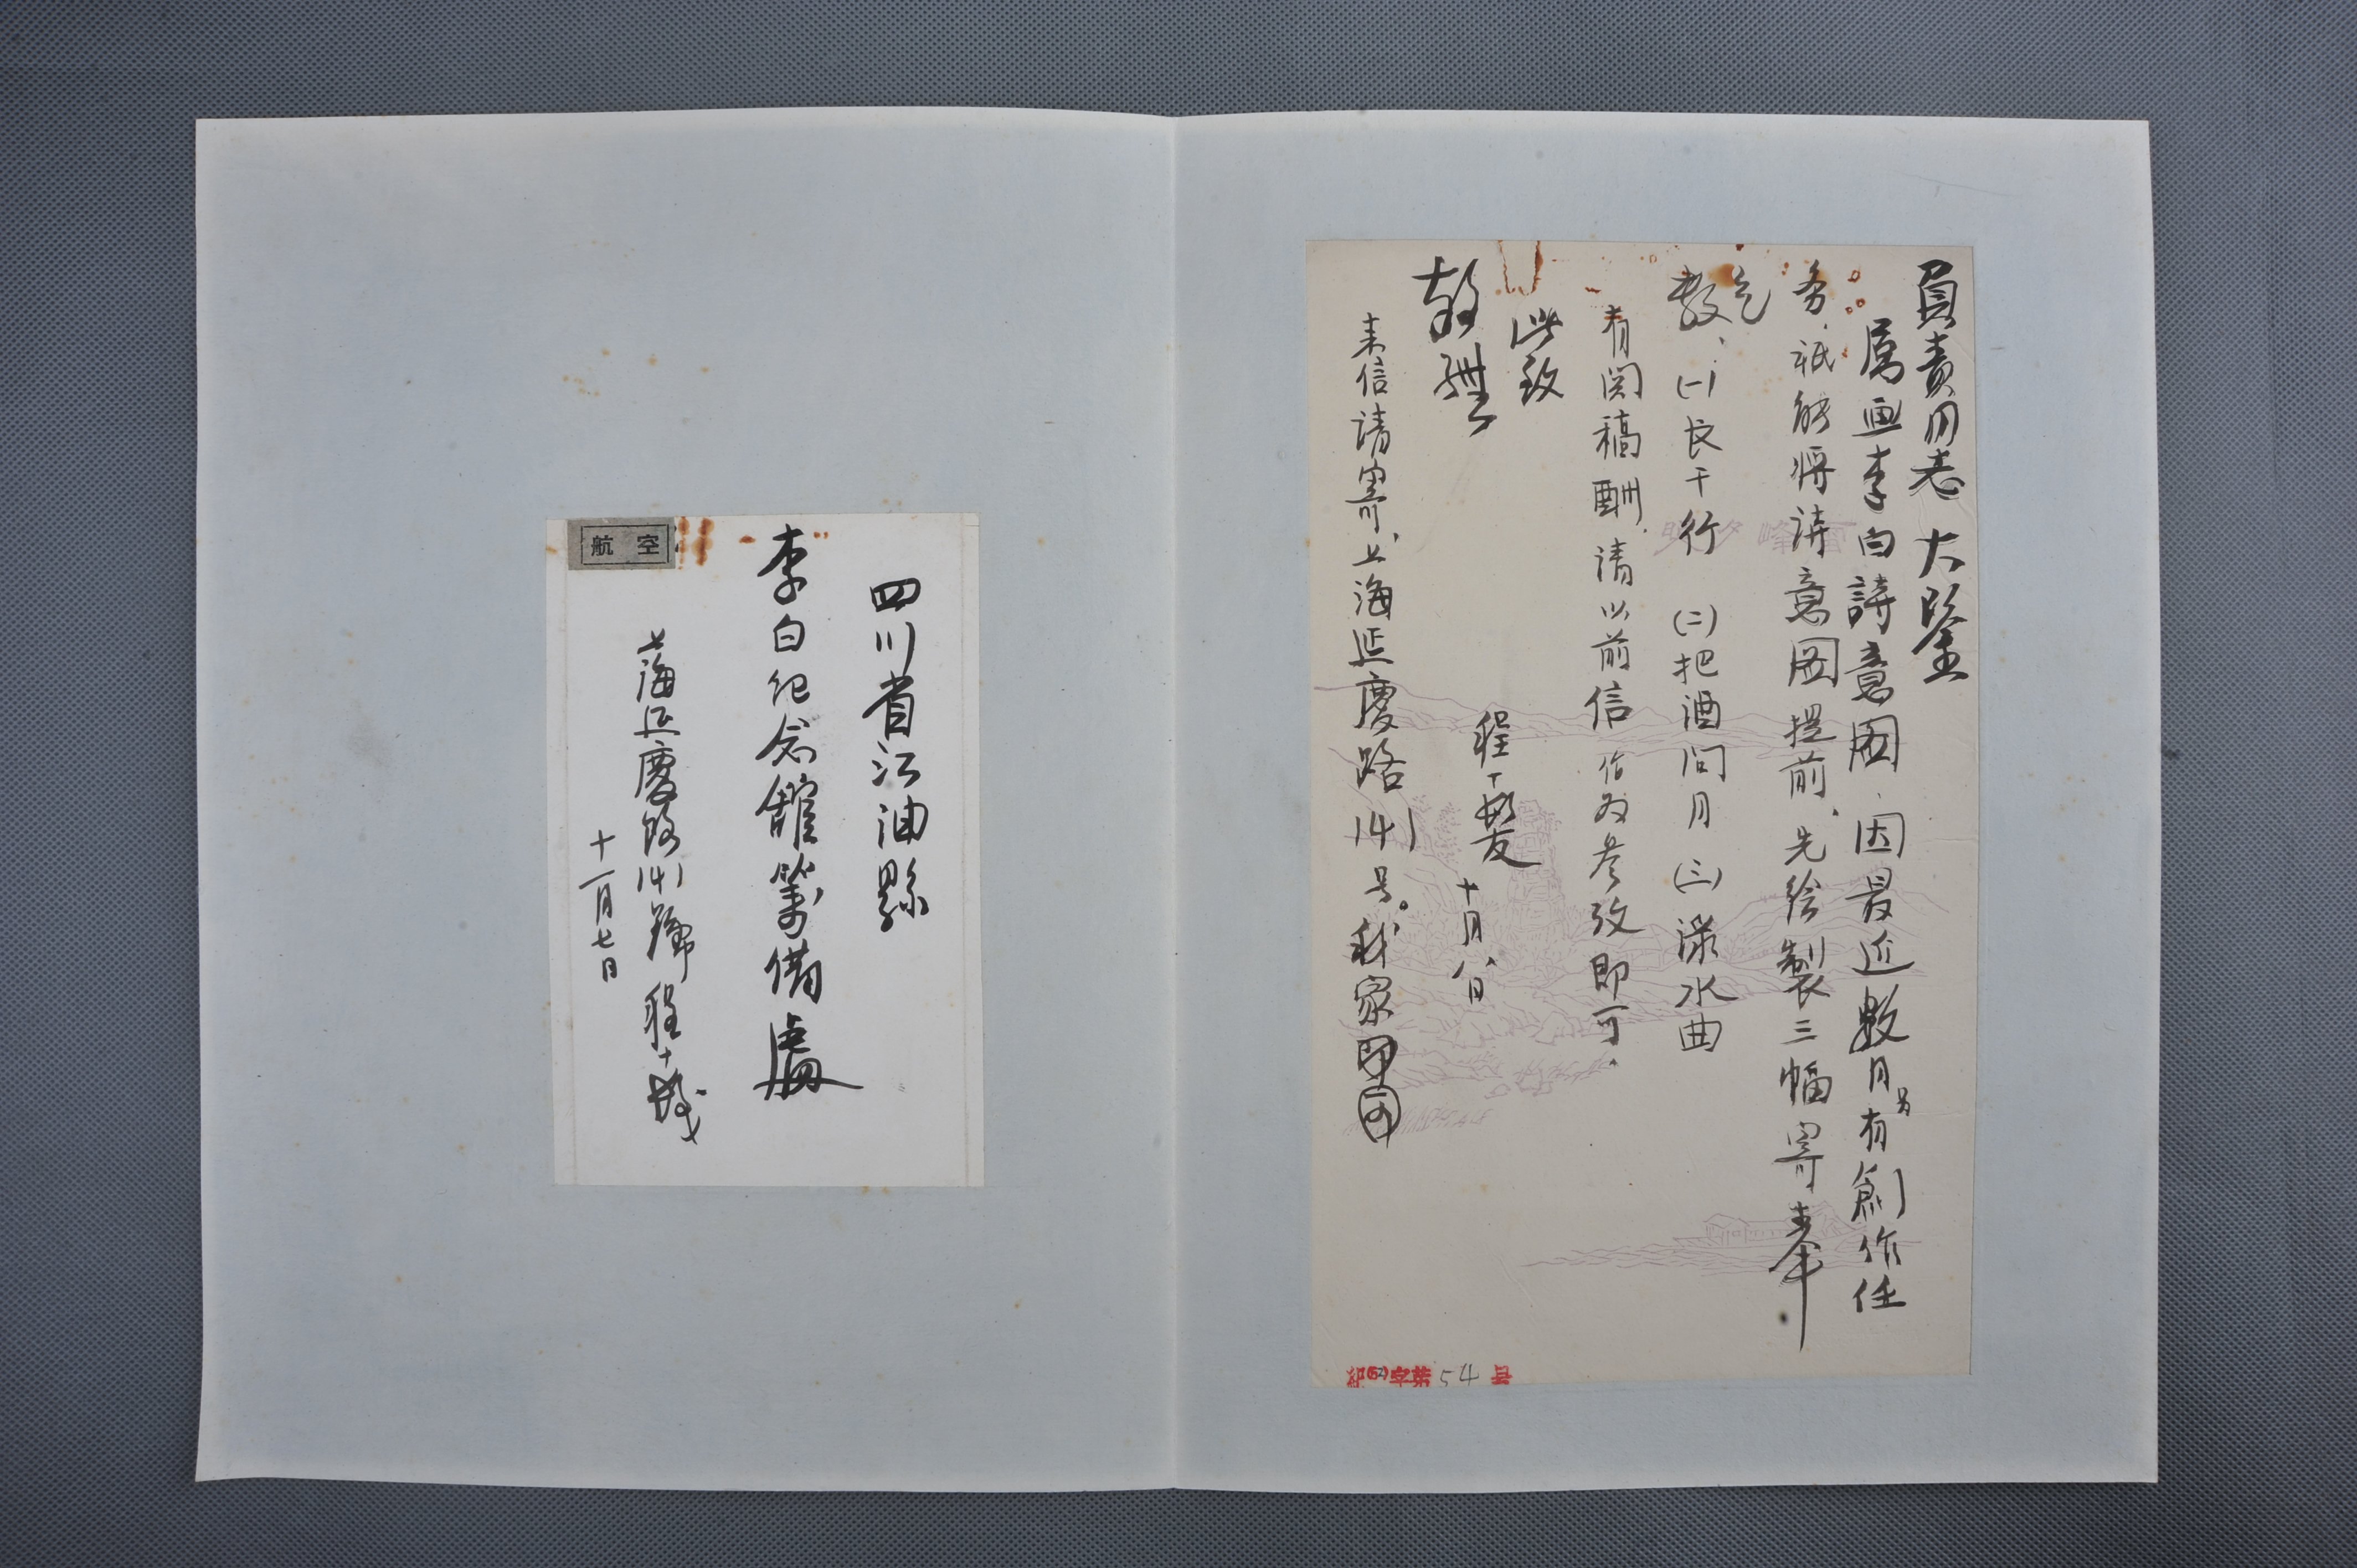 負責同志大鑒
属画李白詩意图，因最近數月另有創作任
务，祇能将詩意图提前，先绘製三幅寄奉
乞
教，（一）长干行（二）把酒问月（三）渌水曲
有関稿酬，请以前信作为参攷即可．
此致
敬礼
程十髮 十月八日
来信请寄上海延慶路141号。我家即可
紀(62)字第54号
四川省江油縣
李白纪念館筹備處
上海延慶路141號 程十髮
十一月七日
航空